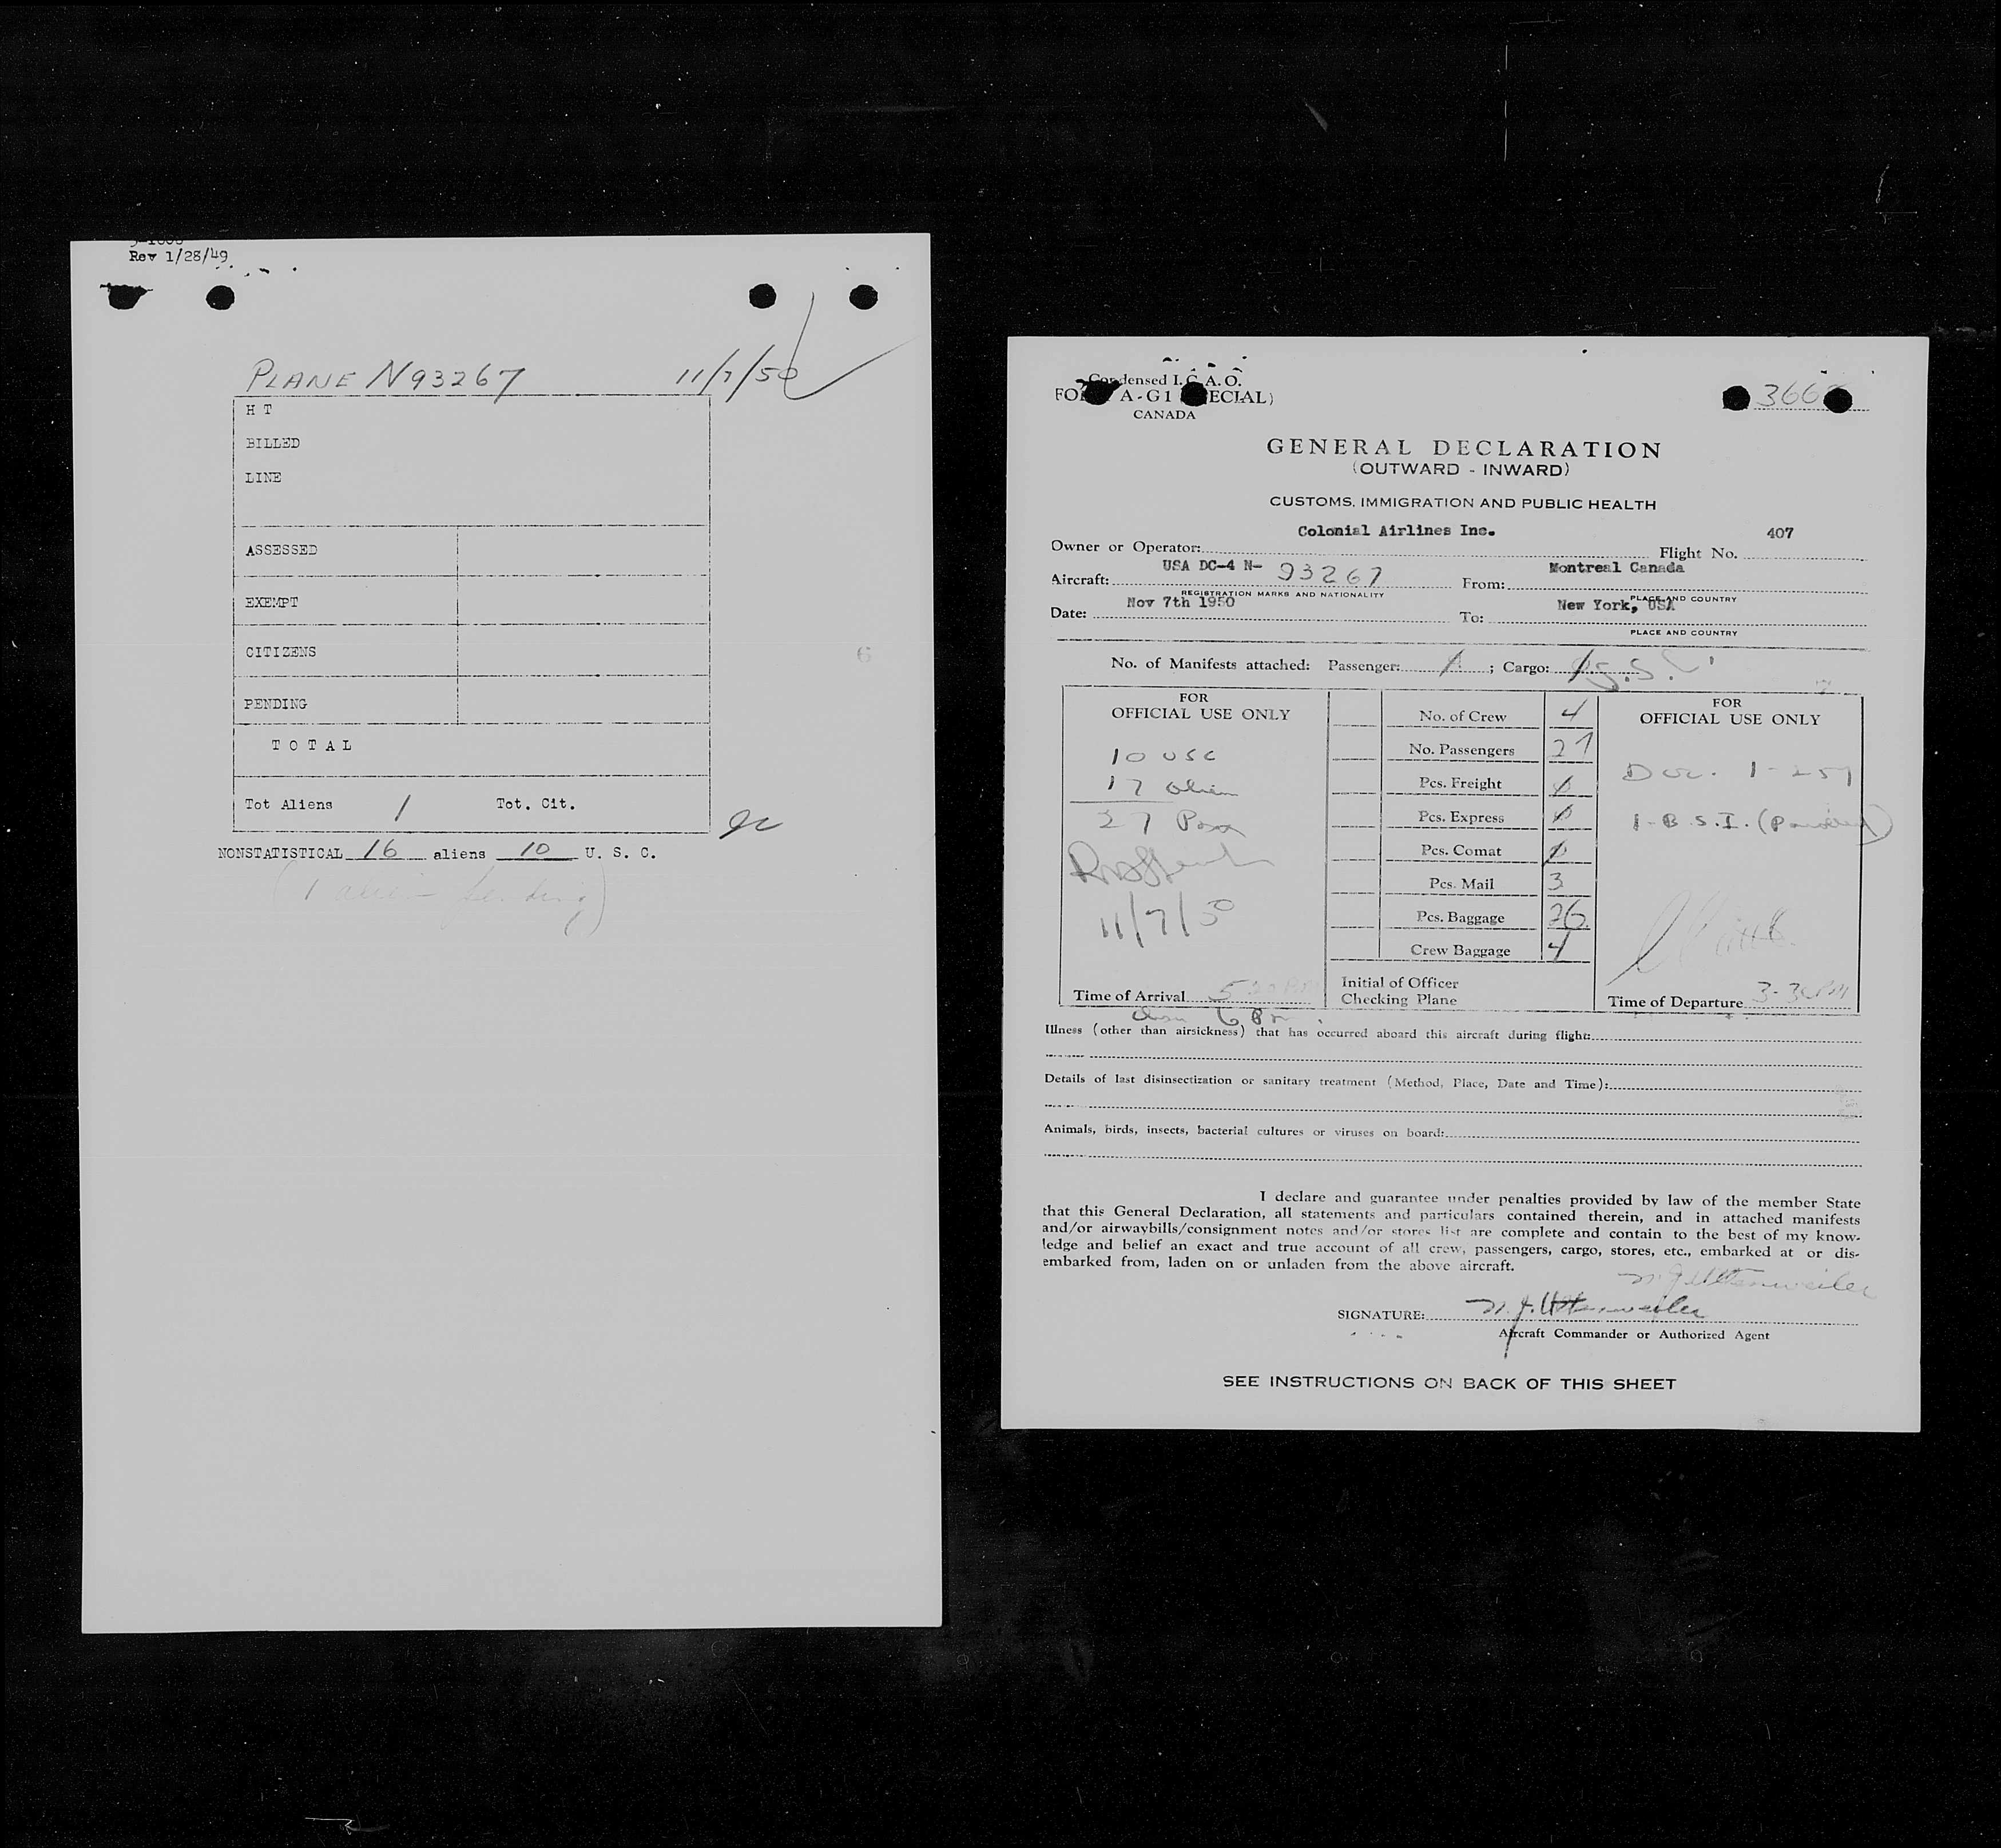 Rev 1/28/49
PLANE N93267 11/7/50
H T
BILLED
LINE
ASSESSED
EXEMPT
CITIZENS
PENDING
T O T A L
Tot Aliens 1 Tot. Cit.
NONSTATISTICAL 16 aliens 10 U. S. C.
(1 alien pending)
6
Condensed I.C.A.O.
A-G1 ECIAL)
CANADA
366
GENERAL DECLARATION
(OUTWARD - INWARD)
CUSTOMS, IMMIGRATION AND PUBLIC HEALTH
Owner or Operator: Colonial Airlines Inc. Flight No. 407
Aircraft: USA DC-4 N- 93267 From: Montreal Canada
REGISTRATION MARKS AND NATIONALITY PLACE AND COUNTRY
Date: Nov 7th 1950 To: New York, USA
PLACE AND COUNTRY
No. of Manifests attached: Passenger: 1 ; Cargo: 1
FOR
OFFICIAL USE ONLY
10 USC
17 alien
27 Pass
11/7/50
Time of Arrival 5
6 Pm
No. of Crew 4
No. Passengers 27
Pcs. Freight 0
Pcs. Express 0
Pcs. Comat 0
Pcs. Mail 3
Pcs. Baggage 26
Crew Baggage 4
Initial of Officer
Checking Plane
FOR
OFFICIAL USE ONLY
1-B.S.I.
Time of Departure 3-30PM
Illness (other than airsickness) that has occurred aboard this aircraft during flight:
Details of last disinsectization or sanitary treatment (Method, Place, Date and Time):
Animals, birds, insects, bacterial cultures or viruses on board:
I declare and guarantee under penalties provided by law of the member State
that this General Declaration, all statements and particulars contained therein, and in attached manifests
and/or airwaybills/consignment notes and/or stores list are complete and contain to the best of my know-
ledge and belief an exact and true account of all crew, passengers, cargo, stores, etc., embarked at or dis-
embarked from, laden on or unladen from the above aircraft.
SIGNATURE:
Aircraft Commander or Authorized Agent
SEE INSTRUCTIONS ON BACK OF THIS SHEET